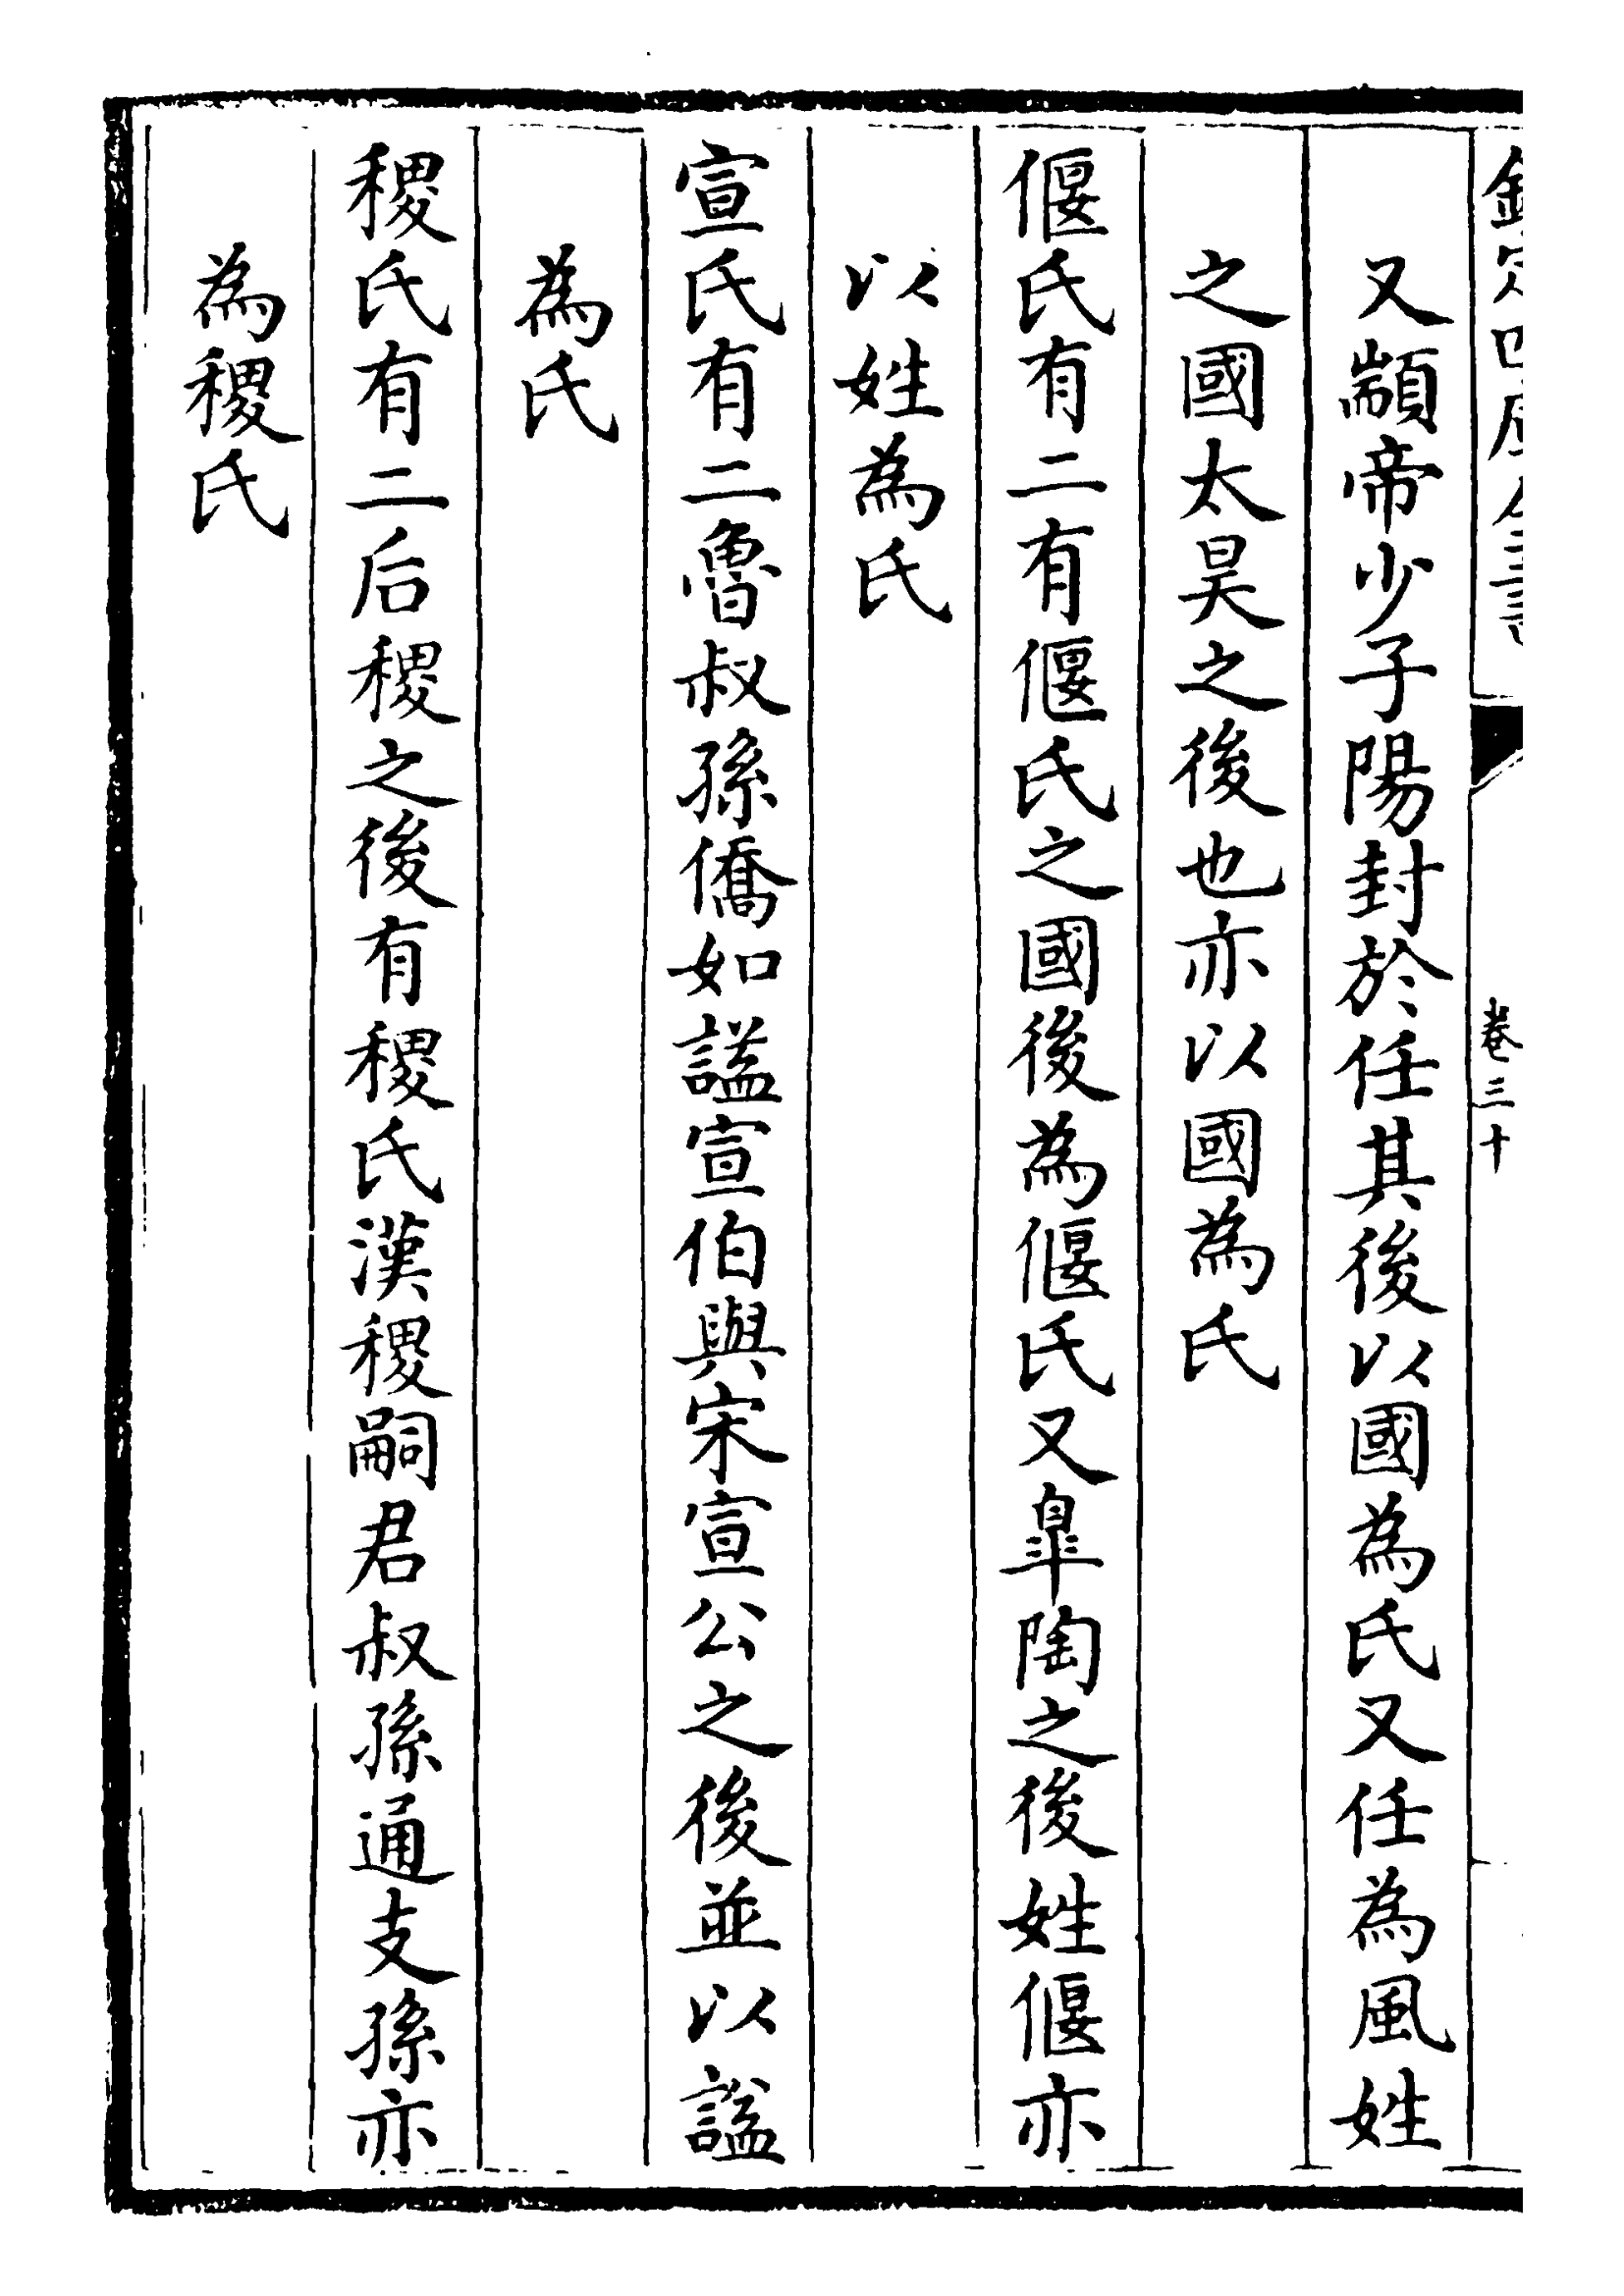 欽定四庫全書 卷三十
又顓帝少子陽封於任其後以國為氏又任為風姓
之國太昊之後也亦以國為氏
偃氏有二有偃氏之國後為偃氏又臯陶之後姓偃亦
以姓為氏
宣氏有二魯叔孫僑如諡宣伯與宋宣公之後並以諡
為氏
稷氏有二后稷之後有稷氏漢稷嗣君叔孫通支孫亦
為稷氏